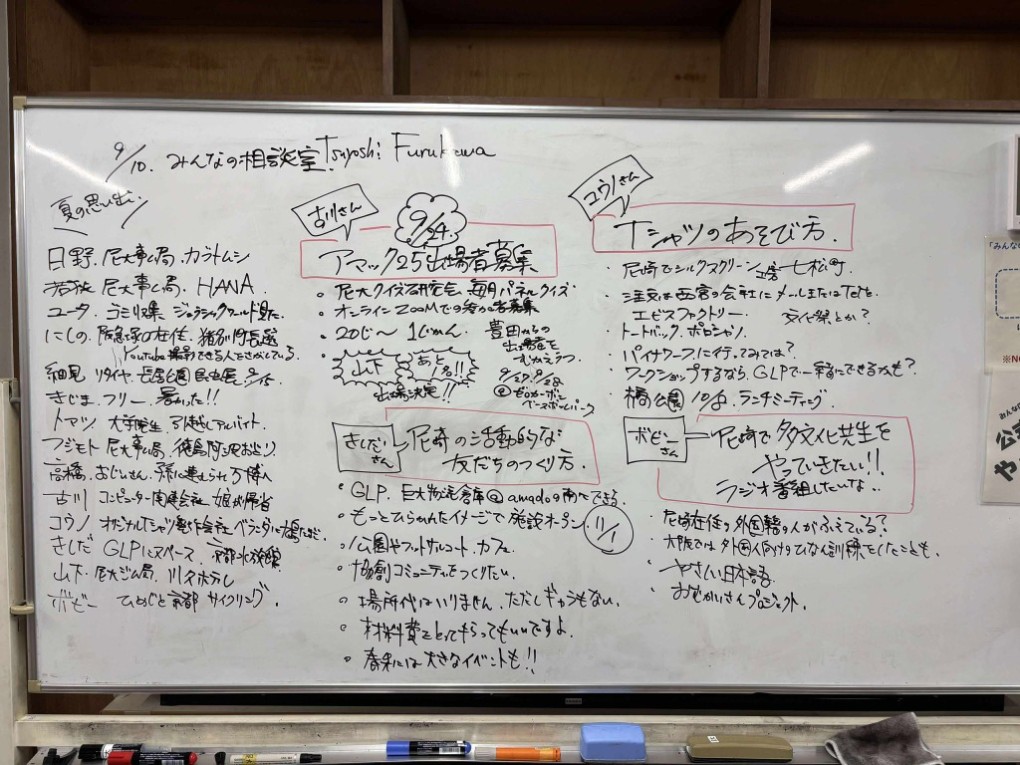 9/10. みんなの相談室! Tsuyoshi Furukawa
夏の思い出
日野. 尼大事ム局. カブトムシ
若狭 尼大事ム局. HANA
ユータ. ゴミ収集 ジュラシックワールド見た
にしの 阪急塚口在住 猪名川
Youtube撮影できる人をさがしている
細見 リタイヤ. 長居公園 昆虫展 9/15
きじま. フリー. 暑かった!!
トマツ 大学院生. 引越しアルバイト
フジモト 尼大事ム局. 徳島阿波おどり
高橋. おじいさん. 孫に連れられ万博へ
古川 コンピューター関連会社 娘が帰省
コウノ オリジナルTシャツ製作会社 ベランダに
きしだ GLPにスペース. 京都水族館
山下. 尼大ジム局. 川スホテレ
ボビー ひめじと京都 サイクリング.
古川さん
9/24.
アマック25出場者募集
尼大クイズ研究会. 毎月パネルクイズ
オンライン ZOOMでの参加者募集
20じ〜 1じかん
山下
あと1名!!
出場決定!!
豊田からの
出場者を
むかえうつ
9/27. 9/28
@ゼロカーボン
ベースボールパーク
きしださん
尼崎の活動的な
友だちのつくり方.
GLP. 巨大物流倉庫@amadoの南にできる.
もっとひらかれたイメージで施設オープン
11/1
公園やフットサルコート. カフェ
協創コミュニティをつくりたい.
場所代はいりません. ただしギャラもない.
材料費をとってもらってもいいですよ.
春には大きなイベントも!!
コウノさん
Tシャツのあそび方.
尼崎でシルクスクリーン工房 七松町.
注文は西宮の会社にメールまたはTelを.
エビスファクトリー
文化祭とか?
トートバッグ. ポロシャツ.
パイナワーフに行ってみては?
ワークショップするなら. GLPで一緒にできるかも?
橘公園 10/8. ランチミーティング.
ボビーさん
尼崎で多文化共生を
やっていきたい!!
ラジオ番組したいな..
尼崎在住の外国籍の人がふえている?
大阪では外国人向けのひなん訓練をしたことも.
やさしい日本語
おせっかいさんプロジェクト.